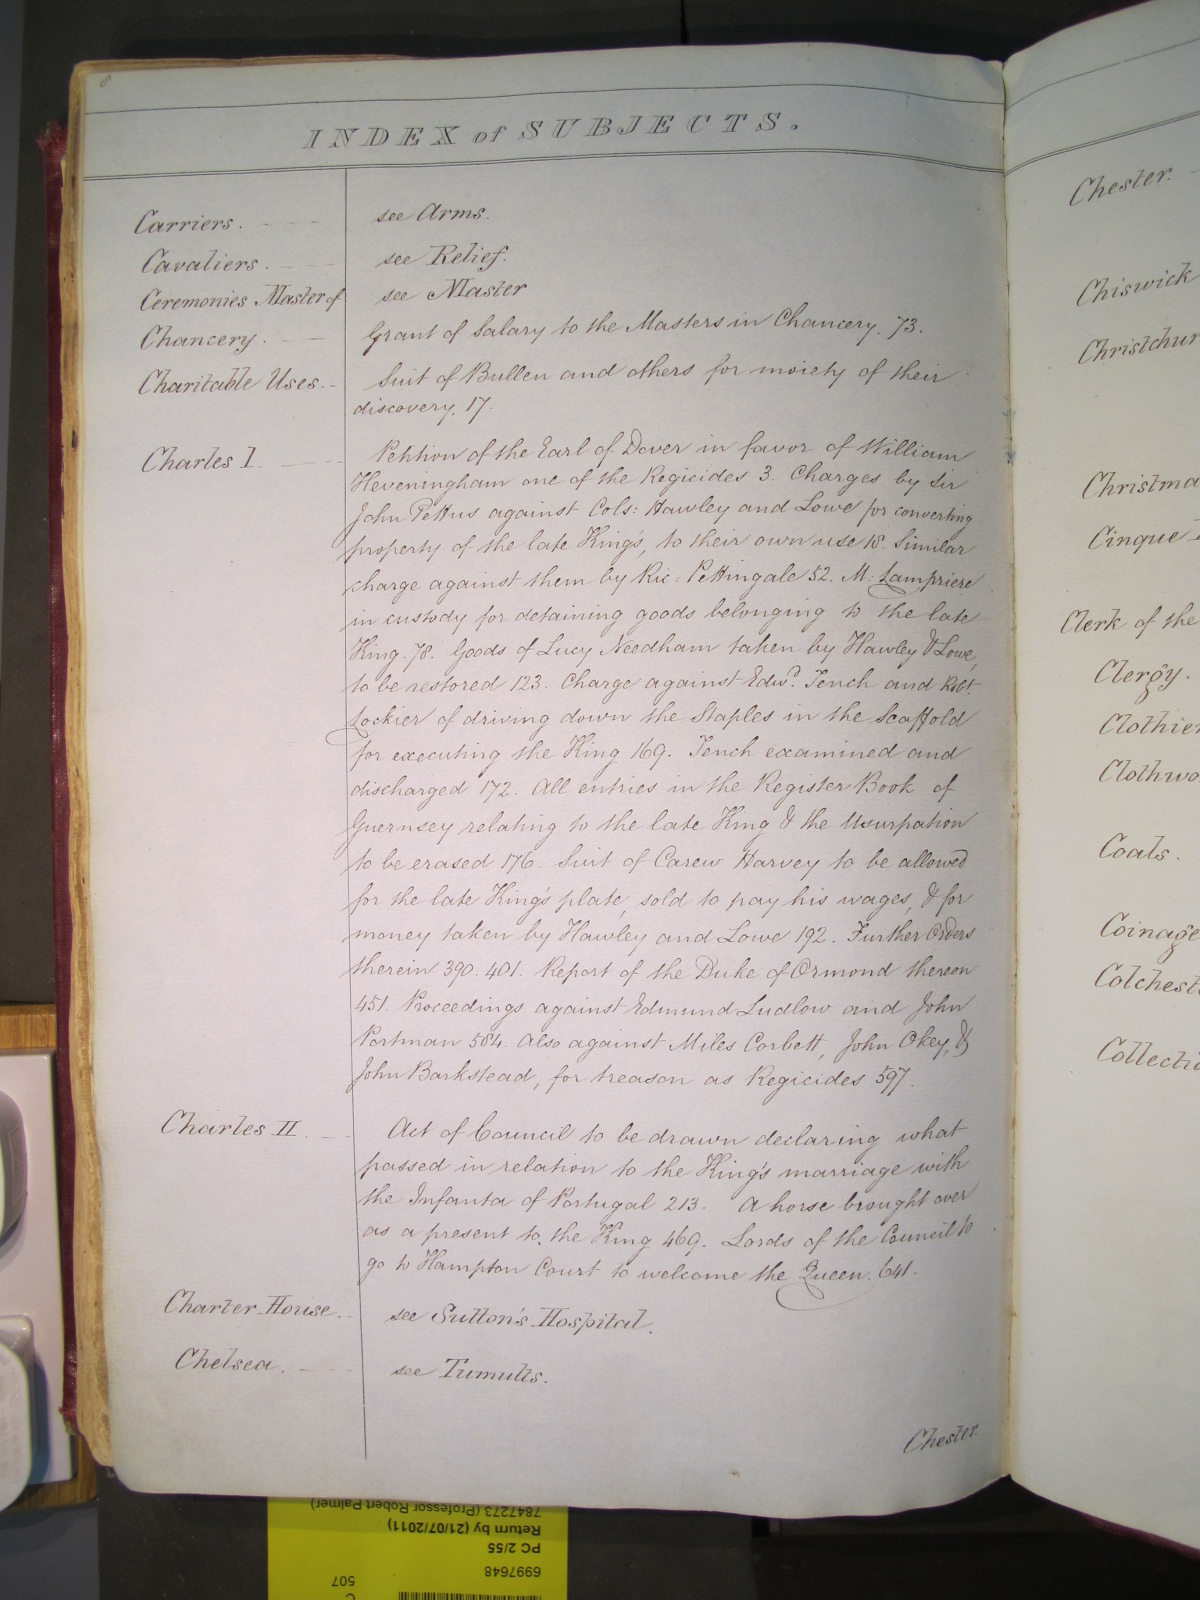 8
INDEX of SUBJECTS.
Carriers. see Arms.
Cavaliers. see Relief.
Ceremonies Master of see Master
Chancery. Grant of Salary to the Masters in Chancery. 73.
Charitable Uses. Suit of Bullen and others for moiety of their
discovery. 17.
Charles I. Petition of the Earl of Dover in favor of William
Heveningham one of the Regicides 3. Charges by Sir
John Pettus against Cols: Hawley and Lowe for converting
property of the late Kings, to their own use 18. Similar
charge against them by Ric: Pettingale 52. M: Lampriere
in custody for detaining goods belonging to the late
King. 78. Goods of Lucy Needham taken by Hawley & Lowe,
to be restored 123. Charge against Edwd. Tench and Robt.
Lockier of driving down the Staples in the Scaffold
for executing the King 169. Tench examined and
discharged 172. All entries in the Register Book of
Guernsey relating to the late King & the Usurpation
to be erased 176. Suit of Carew Harvey to be allowed
for the late King's plate, sold to pay his wages, & for
money taken by Hawley and Lowe 192. Further Orders
therein 390. 401. Report of the Duke of Ormond thereon
451. Proceedings against Edmund Ludlow and John
Portman 584. Also against Miles Corbett, John Okey, &
John Barkstead, for treason as Regicides 597.
Charles II. Act of Council to be drawn declaring what
passed in relation to the King's marriage with
the Infanta of Portugal 213. A horse brought over
as a present to the King 469. Lords of the Council to
go to Hampton Court to welcome the Queen. 641.
Charter House. see Sutton's Hospital.
Chelsea. see Tumults.
Chester.
Chester.
Chiswick
Christchur
Christma
Cinque
Clerk of the
Clergy.
Clothier
Clothwo
Coals.
Coinage
Colchest
Collecti
7847273 (Professor Robert Palmer)
Return by (21/07/2011)
PC 2/55
6997648
507